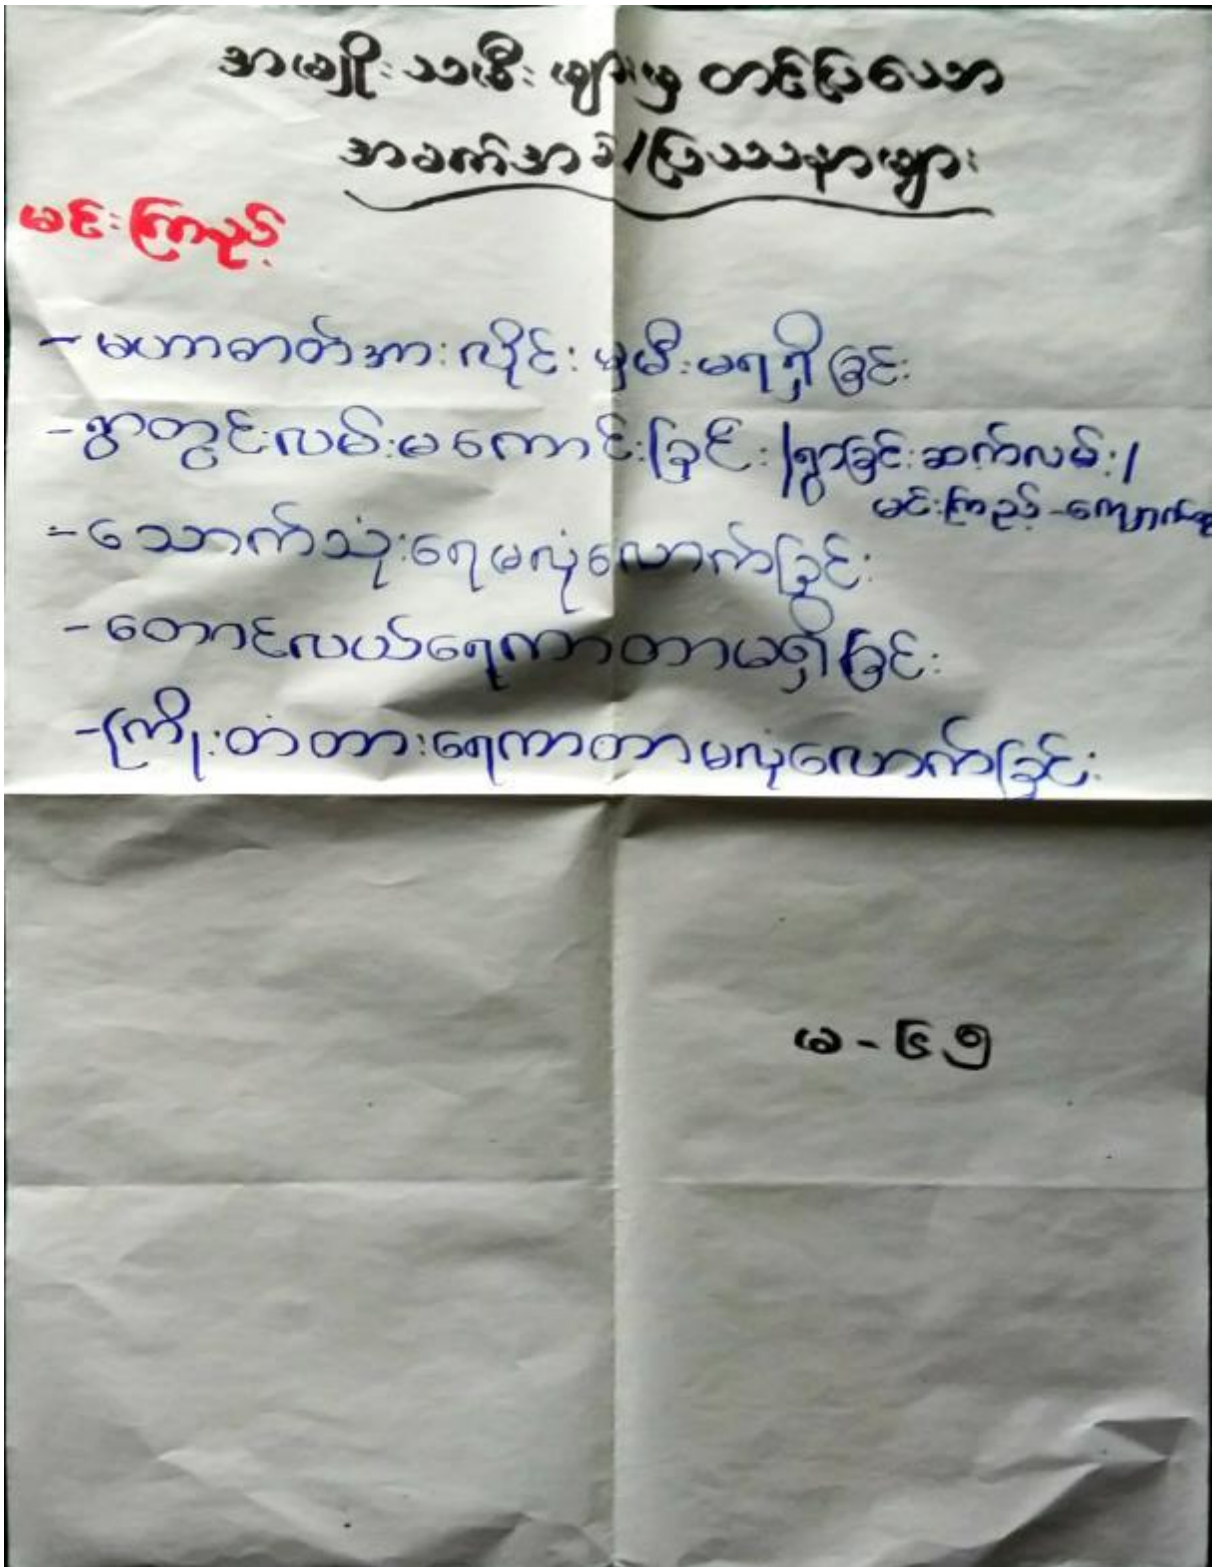 အမျိုးသမီးများမှ တင်ပြသော
အခက်အခဲ/ပြဿနာများ
မင်းကြည့်
- မဟာဓာတ်အားလိုင်းမှမီးမရရှိခြင်း
- ရွာတွင်းလမ်းမကောင်းခြင်း /ရွာခြင်းဆက်လမ်း/
မင်းကြည့်-ကျောက်
- သောက်သုံးရေမလုံလောက်ခြင်း
- တောင်လယ်ရေကာတာမရှိခြင်း
- ကြိုးတံတားရေကာတာမလုံလောက်ခြင်း
မ - ၆၅